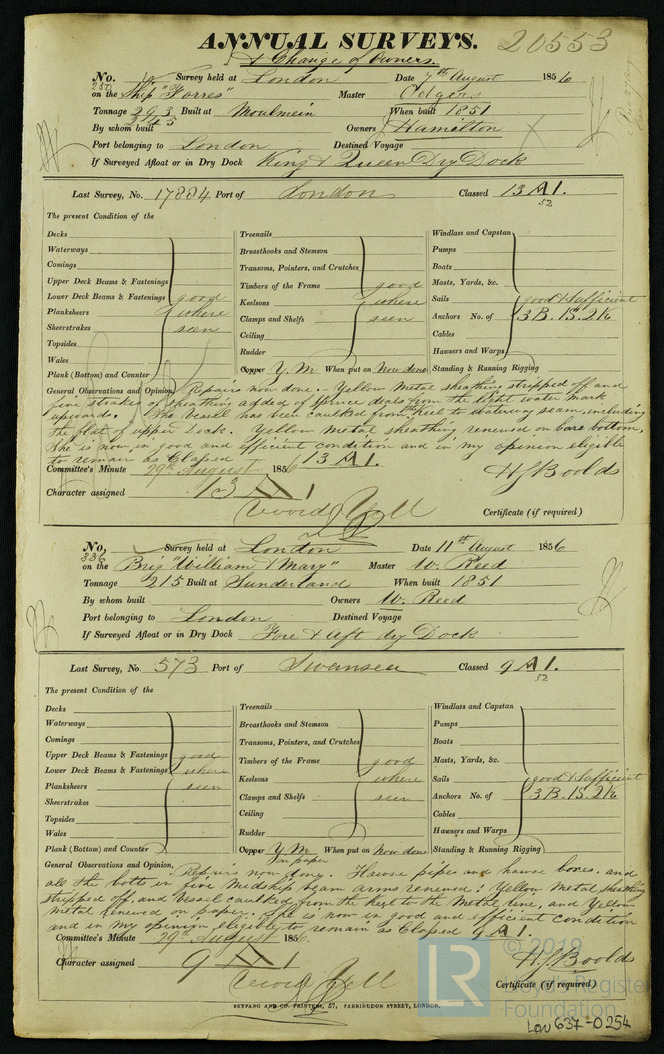 ANNUAL SURVEYS. 20553
& Change of Owners.
No. Survey held at London Date 7th August 1856
250 on the Ship "Forres" Master Edgers
Tonnage 293 Built at Moulmein When built 1851
By whom built Owners Hamilton
Port belonging to London Destined Voyage
If Surveyed Afloat or in Dry Dock King & Queen Dry Dock
Last Survey, No. 17884 Port of London Classed 13 A1.
52
The present Condition of the
Decks
Waterways
Comings
Upper Deck Beams & Fastenings
Lower Deck Beams & Fastenings good
Planksheers where
Sheerstrakes seen
Topsides
Wales
Plank (Bottom) and Counter
Treenails
Breasthooks and Stemson
Transoms, Pointers, and Crutches
Timbers of the Frame good
Keelsons where
Clamps and Shelfs seen
Ceiling
Rudder
Copper Y.M When put on Now done
Windlass and Capstan
Pumps
Boats
Masts, Yards, &c.
Sails good & sufficient
Anchors No. of 3B. 1S. 2K
Cables
Hawsers and Warps
Standing & Running Rigging
General Observations and Opinion, Repairs now done. - Yellow Metal sheathing stripped off and
five strakes of sheathing added of spruce deals from the light water mark
upwards. The Vessel has been caulked from the keel to watering seam, including
the flat of upper deck. Yellow Metal sheathing renewed on bare bottom.
She is now in good and efficient condition and in my opinion eligible
to remain as Classed 13 A1.
Committee's Minute 29th August 1856
H J Boolds
Character assigned 13 A 1
Certificate (if required)
No. Survey held at London Date 11th August 1856
336 on the Brig "William & Mary" Master W. Reed
Tonnage 215 Built at Sunderland When built 1851
By whom built Owners W. Reed
Port belonging to London Destined Voyage
If Surveyed Afloat or in Dry Dock Fore & Aft dry Dock
Last Survey, No. 573 Port of Swansea Classed 9 A1.
52
The present Condition of the
Decks
Waterways
Comings
Upper Deck Beams & Fastenings good
Lower Deck Beams & Fastenings where
Planksheers seen
Sheerstrakes
Topsides
Wales
Plank (Bottom) and Counter
Treenails
Breasthooks and Stemson
Transoms, Pointers, and Crutches
Timbers of the Frame good
Keelsons where
Clamps and Shelfs seen
Ceiling
Rudder
Copper Y.M When put on Now done
on paper
Windlass and Capstan
Pumps
Boats
Masts, Yards, &c.
Sails good & sufficient
Anchors No. of 3B. 1S. 2K
Cables
Hawsers and Warps
Standing & Running Rigging
General Observations and Opinion, Repairs now done. Hawse pipes and hawse boxes, and
all the bolts in five Midship beam arms renewed: Yellow Metal sheathing
stripped off, and Vessel caulked from the keel to the Metal line, and Yellow
Metal renewed on paper. She is now in good and efficient condition
and in my opinion eligible to remain as Classed 9 A1.
Committee's Minute 29th August 1856.
H J Boolds
Character assigned 9 A 1
Certificate (if required)
SEYFANG AND CO. PRINTERS, 57, FARRINGDON STREET, LONDON.
LR
© 2019
Lloyd's Register
Foundation
LON 637-0254